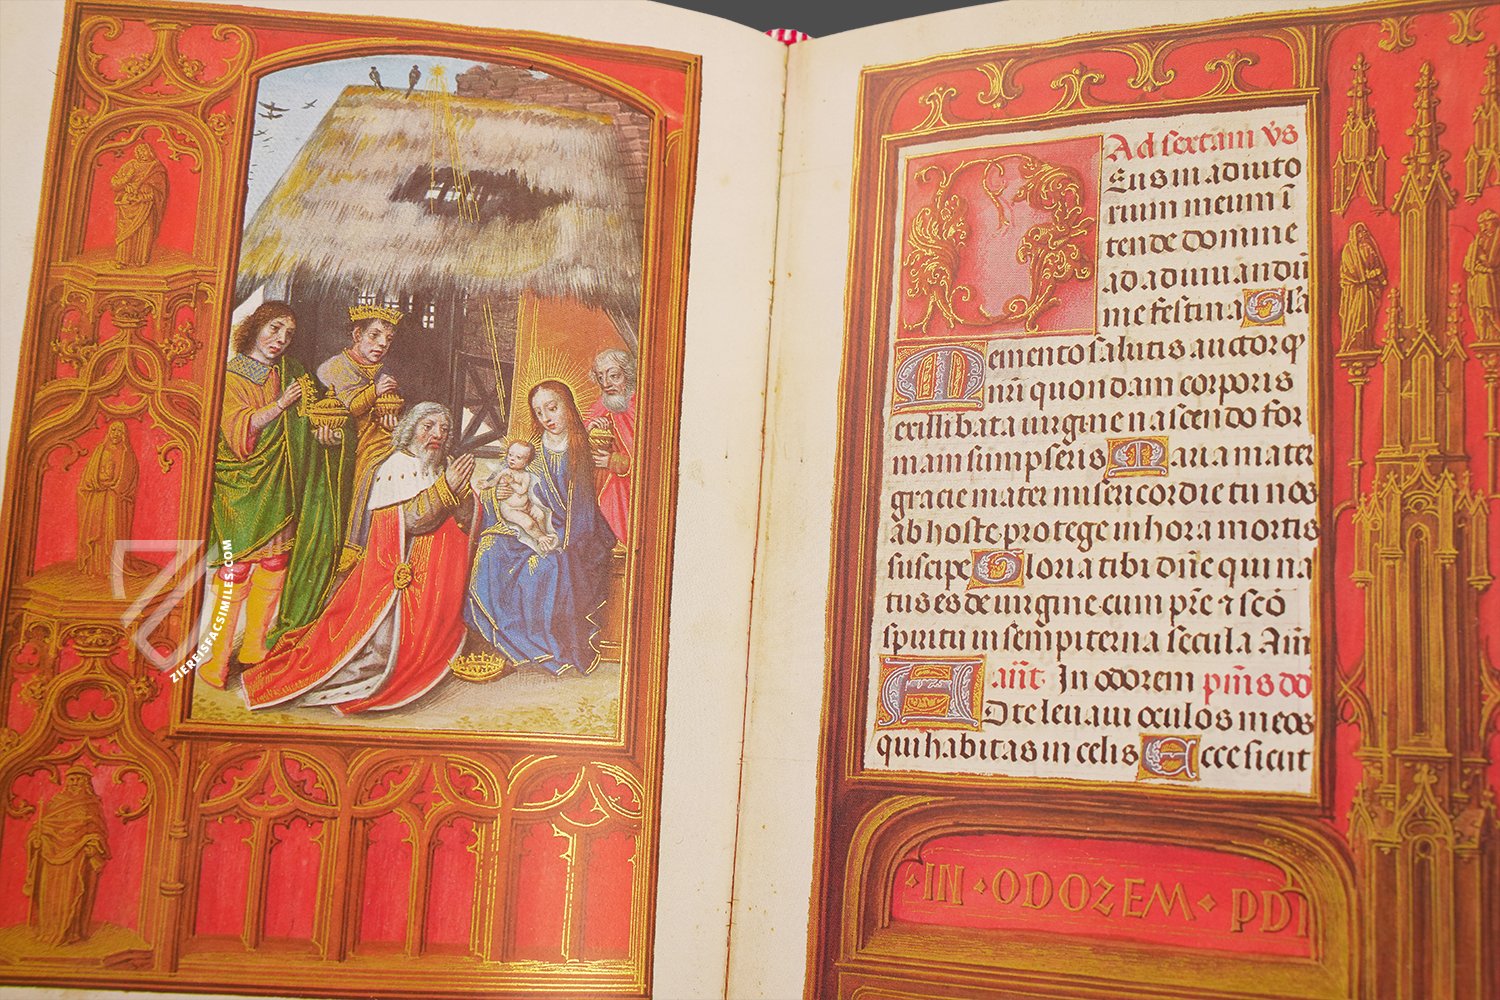 ZIEREISFACSIMILES.COM
Ad sextam v̓s
Eus in adiuto
rium meum ī
tende domine
ad adiuuandū
me festina Gl̓a
Memento salutis auctor q̓
nr̄i quondam corporis
ex illibata uirgine nascendo for
mam sumpseris Maria mater
gracie mater misericordie tu nos
ab hoste protege in hora mortis
suscipe Gloria tibi dn̄e qui na
tus es de uirgine cum pr̄e ⁊ sc̄o
spiritu in sempiterna secula Am̄
Añt In odorem pm̄s do
Ad te leuaui oculos meos
qui habitas in celis Ecce sicut
·IN·ODOZEM·PDI